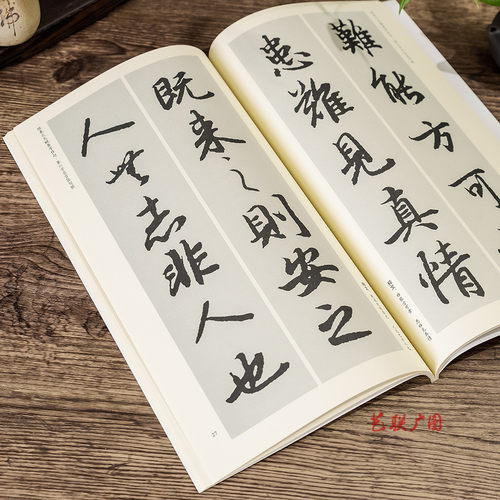 難能方可
患難見真情
既来之則安之
人無志非人也
27
艺联广图